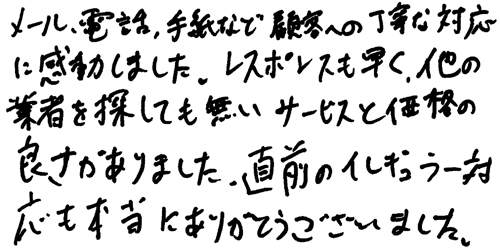 メール、電話、手紙など顧客への丁寧な対応
に感動しました。レスポンスも早く、他の
業者を探しても無い サービスと価格の
良さがありました。直前のイレギュラー対
応も本当にありがとうございました。